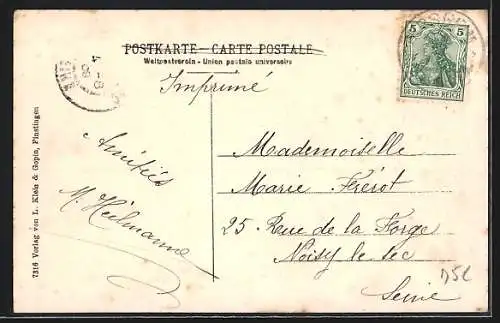 POSTKARTE – CARTE POSTALE
Weltpostverein - Union postale universelle
Imprimé
5 5
DEUTSCHES REICH
Amitiés
M. Heilmann
Mademoiselle
Marie Frérot
25 Rue de la Forge
Noisy le Sec
Seine
7316 Verlag von L. Klein & Gopin, Finstingen